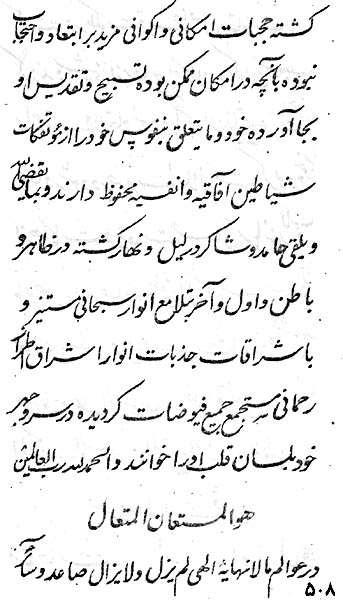 کشته حجبات امکانی و اکوانی مزید بر ابتعاد و احتجاب
نبوده بآنچه در امکان ممکن بوده تسبیح و تقدیس او
بجا آورده خود و ما یتعلق بنفوس خود را از مؤتفکات
شیاطین آفاقیه و انفسیه محفوظ دارند و بما یقضی الله
و یلقی حامد و شاکر در لیل و نهار کشته در ظاهر و
باطن و اول و آخر بتلامع انوار سبحانی مستنیر و
باشراقات جذبات انوار اشراق
رحمانی مستجمع جمیع فیوضات کردیده در سر و جهر
خود بلسان قلب او را خوانند و الحمد لله رب العالمین
هو المستعان المتعال
در عوالم ما لا نهایهٔ الهی لم یزل و لا یزال صاعد و سائر
٥٠٨